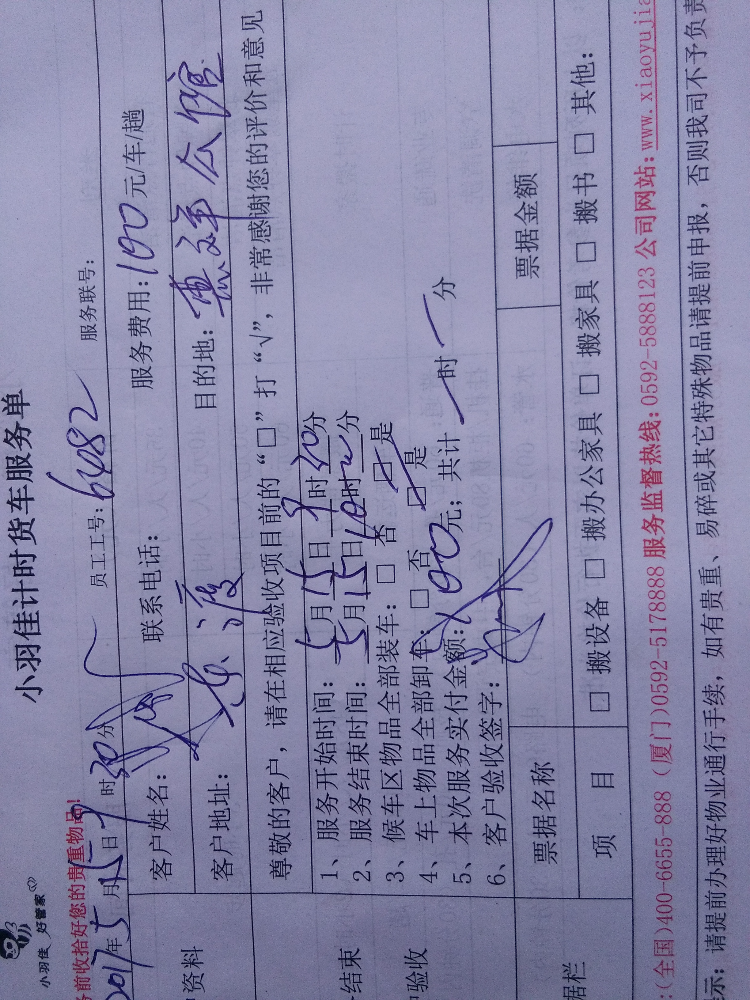 小羽佳计时货车服务单
小羽佳 好管家
务前收拾好您的贵重物品!
2017年5月15日9时30分 员工工号:6482 服务联号:
客户姓名: 联系电话: 服务费用:100元/车/趟
户资料
客户地址: 目的地:惠祥公馆
尊敬的客户,请在相应验收项目前的“□”打“√”,非常感谢您的评价和意见
1、服务开始时间:5月15日9时30分
2、服务结束时间:5月15日10时分
结束
3、候车区物品全部装车:□ 否 ☑ 是
4、车上物品全部卸车:□ 否 ☑ 是
户验收
5、本次服务实付金额:100元;共计 时 分
6、客户验收签字:
票据名称 票据金额
据栏
项 目 □ 搬设备 □ 搬办公家具 □ 搬家具 □ 搬书 □ 其他:
:(全国)400-6655-888 (厦门)0592-5178888 服务监督热线:0592-5888123 公司网站:www.xiaoyujia
示:请提前办理好物业通行手续,如有贵重、易碎或其它特殊物品请提前申报,否则我司不予负责